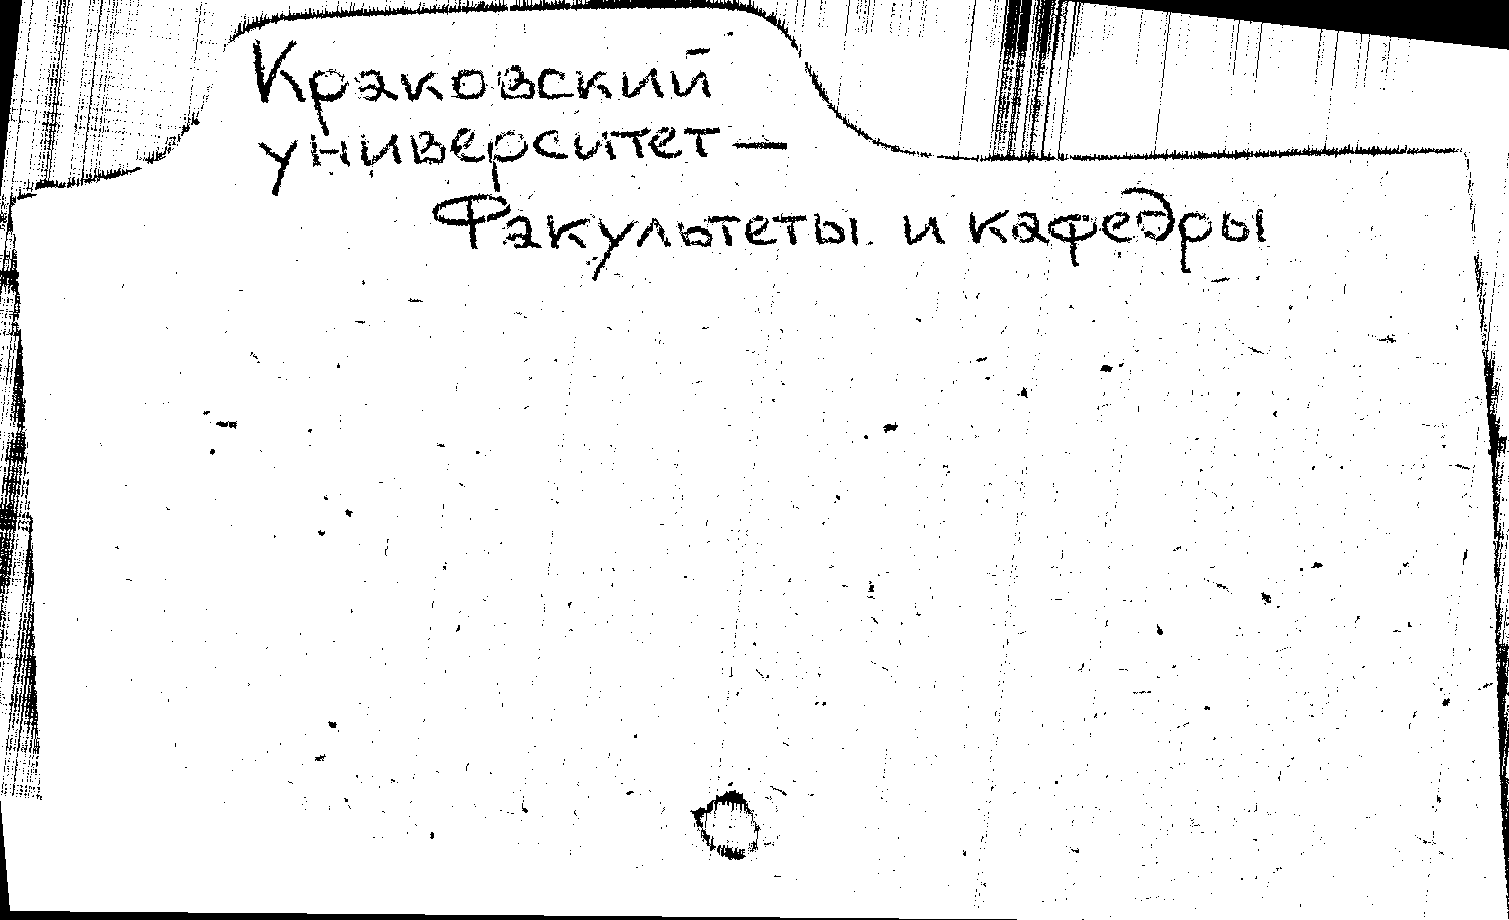 Краковский
университет —
Факультеты и кафедры